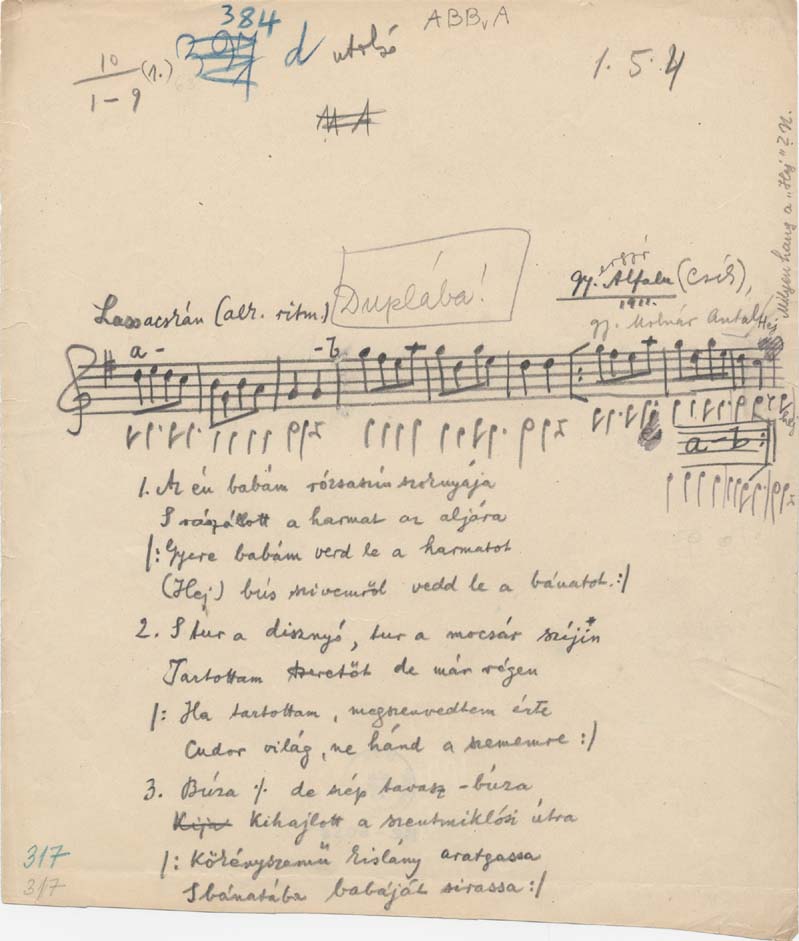 384
ABBvA
d utolsó
10 (1.)
1-9
1.5.4
Milyen hang a "Hej"? N.
Lassacskán (alk. ritm.)
Duplába!
gy. Alfalu (Csík),
1911.
gy. Molnár Antal
Hej
a-
-b
a-b
1. Az én babám rózsaszín szoknyája
S rászállott a harmat az aljára
/: Gyere babám verd le a harmatot
(Hej) bús szivemről vedd le a bánatot :/
2. S tur a disznyó, tur a mocsár széjin*
Tartottam szeretőt de már régen
/: Ha tartottam, megszenvedtem érte
Cudor világ, ne hánd a szememre :/
3. Búza ٪ de szép tavasz-búza
Kija Kihajlott a szentmiklósi útra
/: Kökényszemü kislány aratgassa
S bánatába babáját sirassa :/
317
317